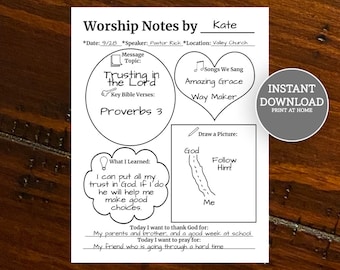 Worship Notes by Kate
*Date: 9/28 *Speaker: Pastor Rich *Location: Valley Church
Message
Topic:
Trusting in
the Lord
Key Bible Verses:
Proverbs 3
Songs We Sang
Amazing Grace
Way Maker
INSTANT
DOWNLOAD
PRINT AT HOME
What I Learned:
I can put all my
trust in God. If I do
he will help me
make good
choices.
Draw a Picture:
God
Follow
Him!
Me
Today I want to thank God for:
My parents and brother, and a good week at school.
Today I want to pray for:
My friend who is going through a hard time.